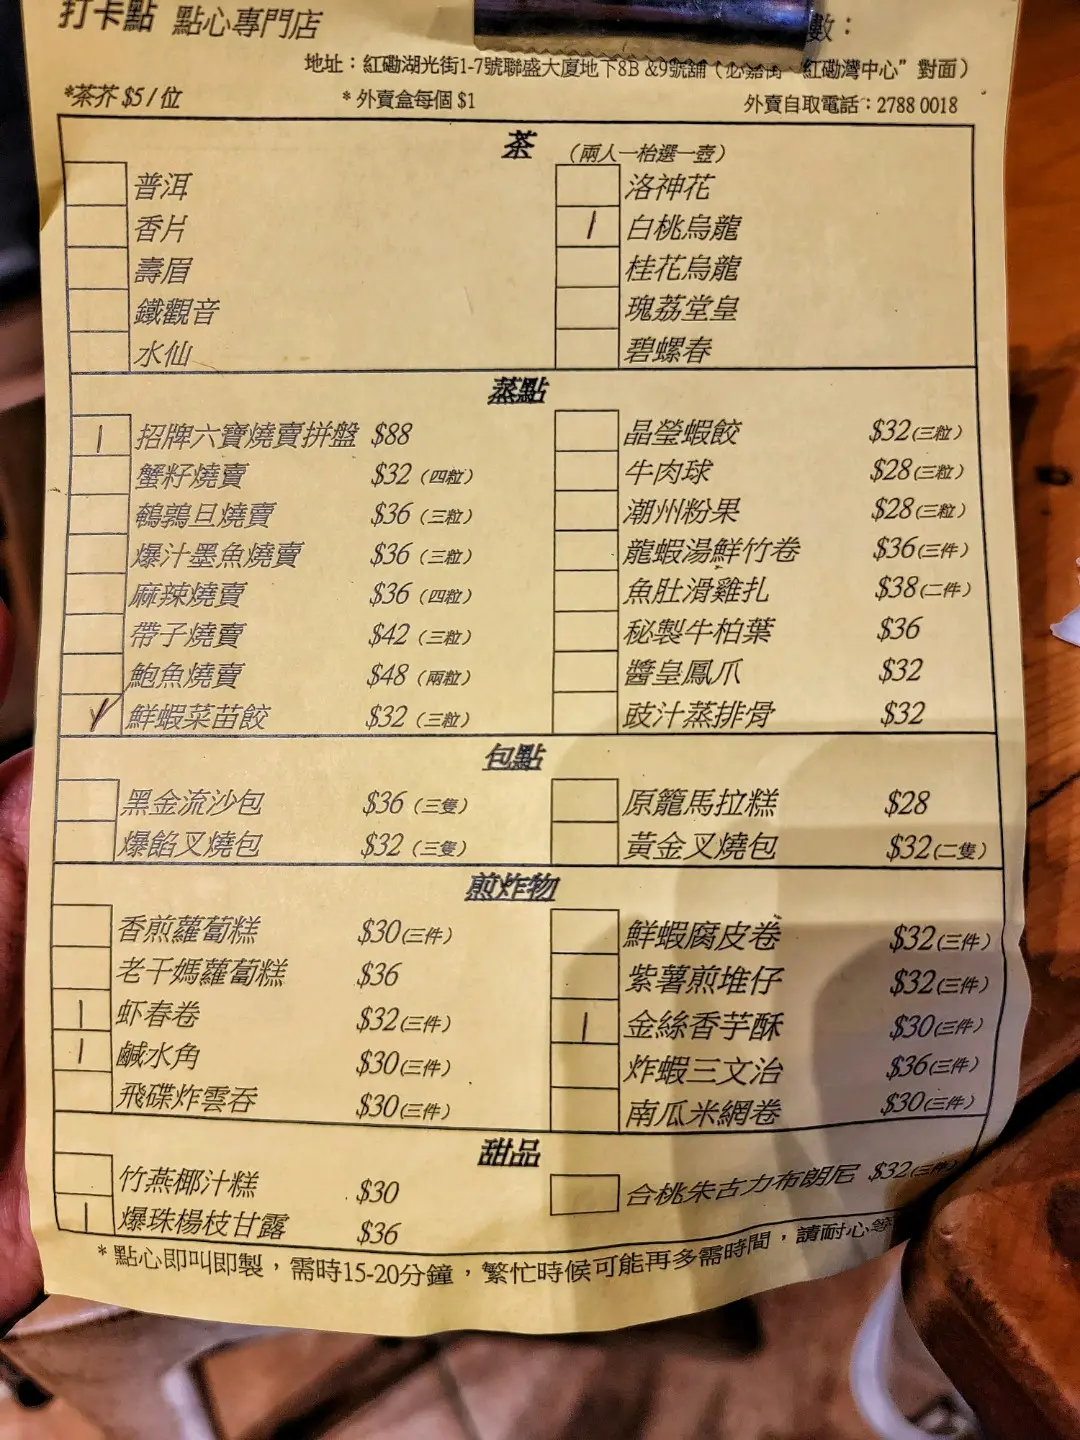 打卡點 點心專門店 數：
地址：紅磡湖光街1-7號聯盛大廈地下8B &9號舖（必嘉街 "紅磡灣中心" 對面）
*茶芥 $5 / 位 * 外賣盒每個 $1 外賣自取電話：2788 0018
茶 （兩人一枱選一壺）
普洱 洛神花
香片 / 白桃烏龍
壽眉 桂花烏龍
鐵觀音 瑰荔堂皇
水仙 碧螺春
蒸點
/ 招牌六寶燒賣拼盤 $88 晶瑩蝦餃 $32(三粒)
蟹籽燒賣 $32（四粒） 牛肉球 $28(三粒)
鵪鶉旦燒賣 $36（三粒） 潮州粉果 $28(三粒)
爆汁墨魚燒賣 $36（三粒） 龍蝦湯鮮竹卷 $36(三件)
麻辣燒賣 $36（四粒） 魚肚滑雞扎 $38(二件)
帶子燒賣 $42（三粒） 秘製牛柏葉 $36
鮑魚燒賣 $48（兩粒） 醬皇鳳爪 $32
✓ 鮮蝦菜苗餃 $32（三粒） 豉汁蒸排骨 $32
包點
黑金流沙包 $36（三隻） 原籠馬拉糕 $28
爆餡叉燒包 $32（三隻） 黃金叉燒包 $32(二隻)
煎炸物
香煎蘿蔔糕 $30(三件) 鮮蝦腐皮卷 $32(三件)
老干媽蘿蔔糕 $36 紫薯煎堆仔 $32(三件)
/ 虾春卷 $32(三件) / 金絲香芋酥 $30(三件)
/ 鹹水角 $30(三件) 炸蝦三文治 $36(三件)
飛碟炸雲吞 $30(三件) 南瓜米網卷 $30(三件)
甜品
竹燕椰汁糕 $30 合桃朱古力布朗尼 $32(三件)
/ 爆珠楊枝甘露 $36
* 點心即叫即製，需時15-20分鐘，繁忙時候可能再多需時間，請耐心等